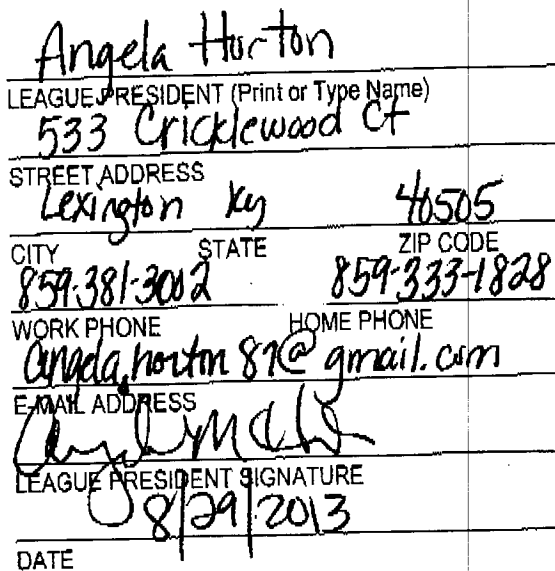 Angela Horton
LEAGUE PRESIDENT (Print or Type Name)
533 Cricklewood Ct
STREET ADDRESS
Lexington Ky 40505
CITY STATE ZIP CODE
859-381-3002 859-333-1828
WORK PHONE HOME PHONE
angela.horton87@gmail.com
E-MAIL ADDRESS
LEAGUE PRESIDENT SIGNATURE
8/29/2013
DATE